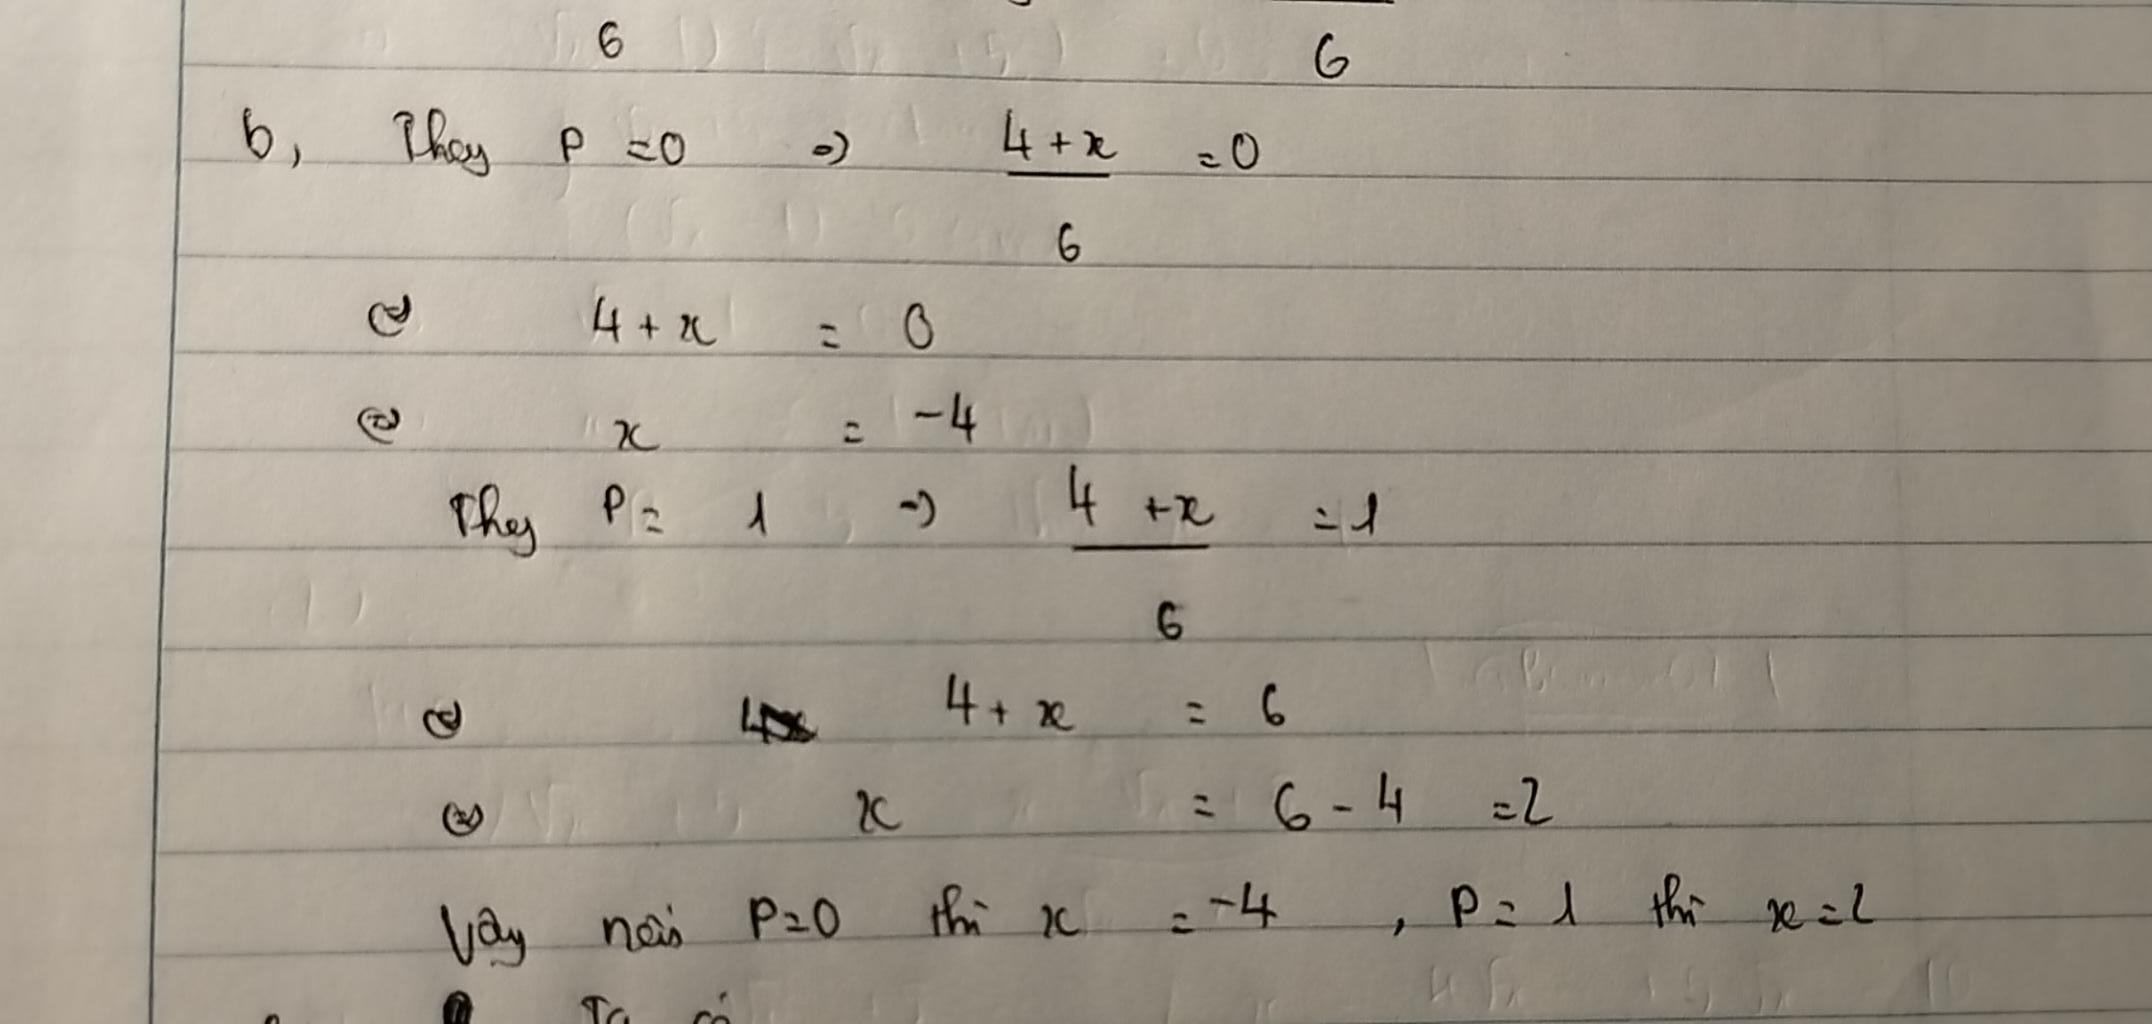 6 6
b, Thay P = 0 => 4 + x = 0
6
<=> 4 + x = 0
<=> x = -4
Thay P = 1 => 4 + x = 1
6
<=> 4 + x = 6
<=> x = 6 - 4 = 2
Vậy nếu P = 0 thì x = -4 , P = 1 thì x = 2
Ta có